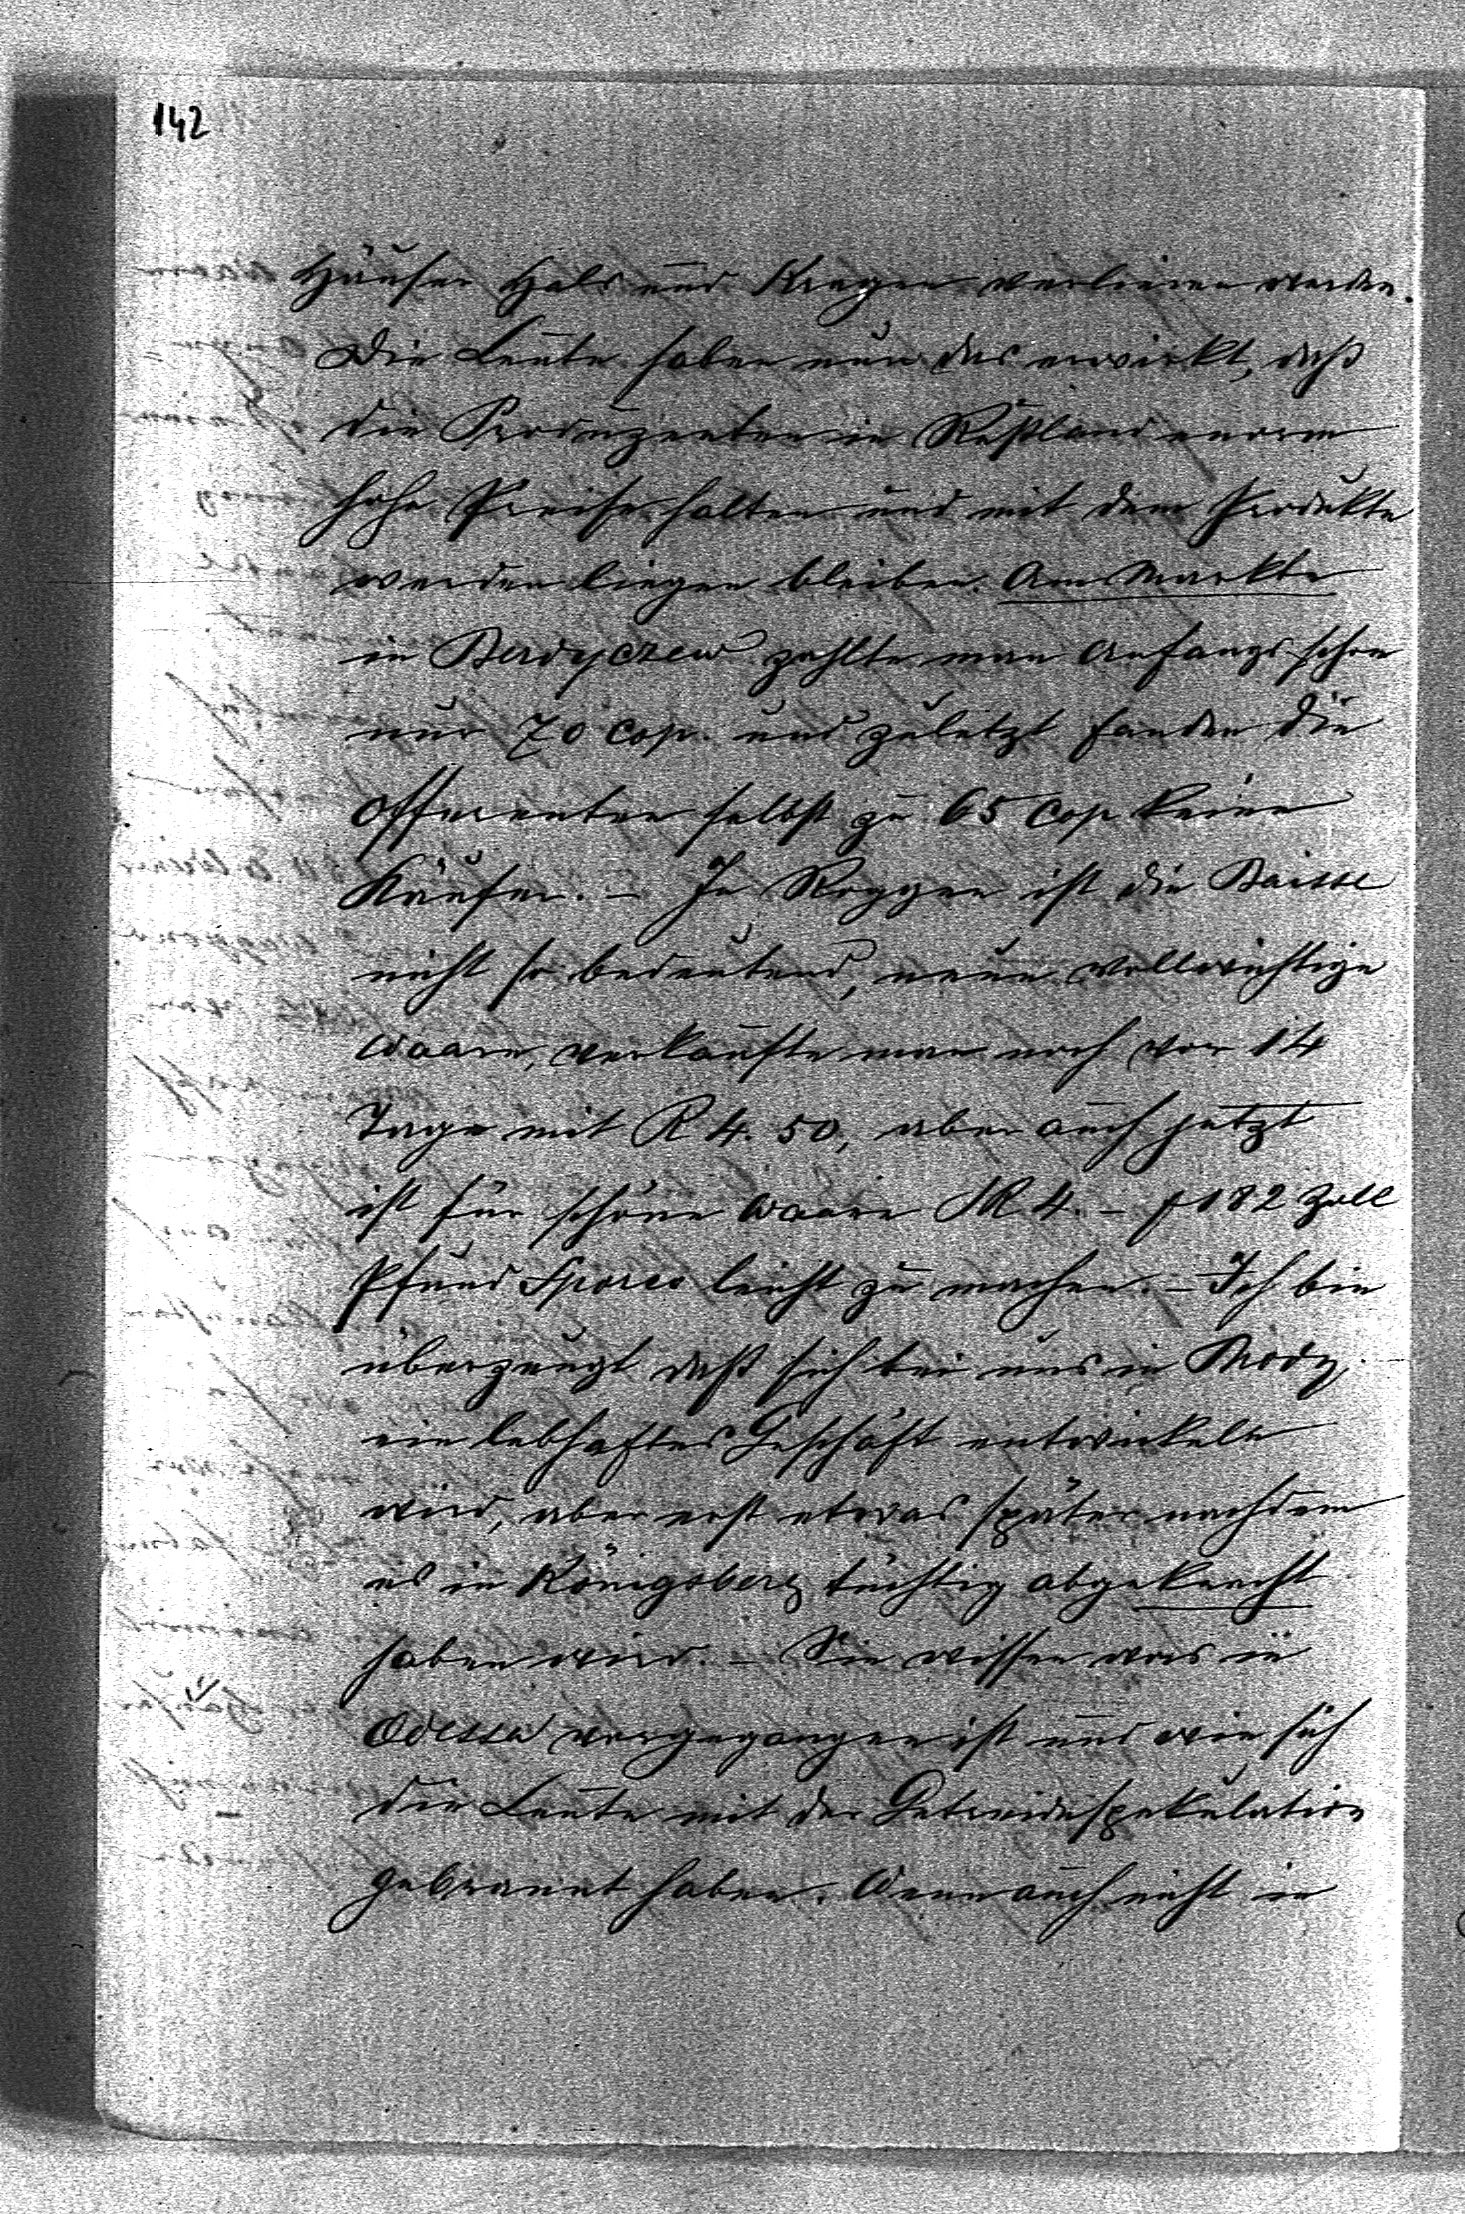 142
Häuser Hals und Kragen verlieren werden.
Die Leute haben nun das erwirkt, daß
die Produzenten in Rußland enorm
hohe Preise halten und mit dem Produkte
werden liegen bleiben. Am Markte
in Berdyczew zahlte man Anfangs schon
nur 70 Cop. und zuletzt fanden die
Offerenten selbst zu 65 Cop keine
Käufer. – In Roggen ist die Baisse
nicht so bedeutend, neue vollwichtige
Waare, verkaufte man noch vor 14
Tage mit R 4. 50, aber auch jetzt
ist für schöne Waare SR 4. – p 182 Zoll
Pfund Sporco leicht zu machen. – Ich bin
überzeugt daß sich bei uns in Brody
ein lebhaftes Geschäft entwickeln
wird, aber erst etwas später nachdem
es in Königsberg tüchtig abgekracht
haben wird. – Sie wissen was in
Odessa vorgegangen ist und wie sich
die Leute mit der Getreidespekulation
gebrannt haben. Wenn auch nicht in